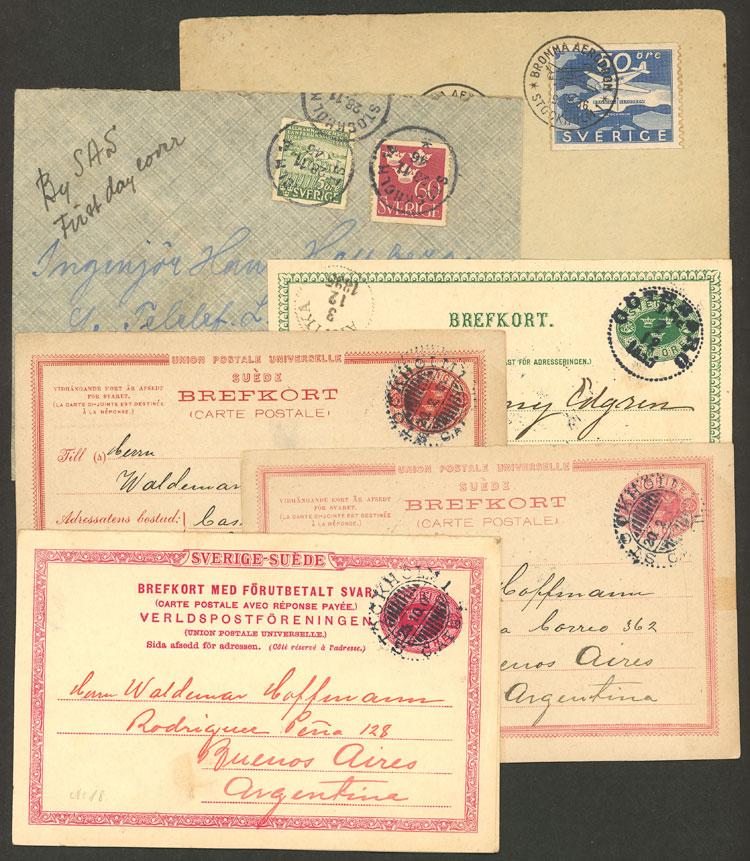 BROMMA AERODROM
STOCKHOLM
50 öre
BROMMA AERODROM
SVERIGE
STOCKHOLM
28.11
5 öre
SVERIGE
60
SVERIGE
STOCKHOLM
46
By SAS
First day cover
Ingenjör
ARVIKA
3
12
1895
BREFKORT.
GÖTEBORG
ÖRE
AST FÖR ADRESSERINGEN.)
Edgren
UNION POSTALE UNIVERSELLE
SUÈDE
VIDHÄNGANDE KORT ÄR AFSEDT
FÖR SVARET.
(LA CARTE CI-JOINTE EST DESTINÉE
À LA RÉPONSE.)
BREFKORT
(CARTE POSTALE)
Till (à) Herrn
Waldemar
Adressatens bostad:
UNION POSTALE UNIVERSELLE
SUÈDE
VIDHÄNGANDE KORT ÄR AFSEDT
FÖR SVARET.
(LA CARTE CI-JOINTE EST DESTINÉE
À LA RÉPONSE.)
BREFKORT
(CARTE POSTALE)
Hoffmann
a Correo 362
enos Aires
Argentina
SVERIGE-SUÈDE
BREFKORT MED FÖRUTBETALT SVAR
(CARTE POSTALE AVEC RÉPONSE PAYÉE.)
VERLDSPOSTFÖRENINGEN
(UNION POSTALE UNIVERSELLE.)
Sida afsedd för adressen. (Côté réservé à l'adresse.)
STOCKHOLM 1
Herrn Waldemar Hoffmann
Rodriguez Peña 128
Buenos Aires
Argentina